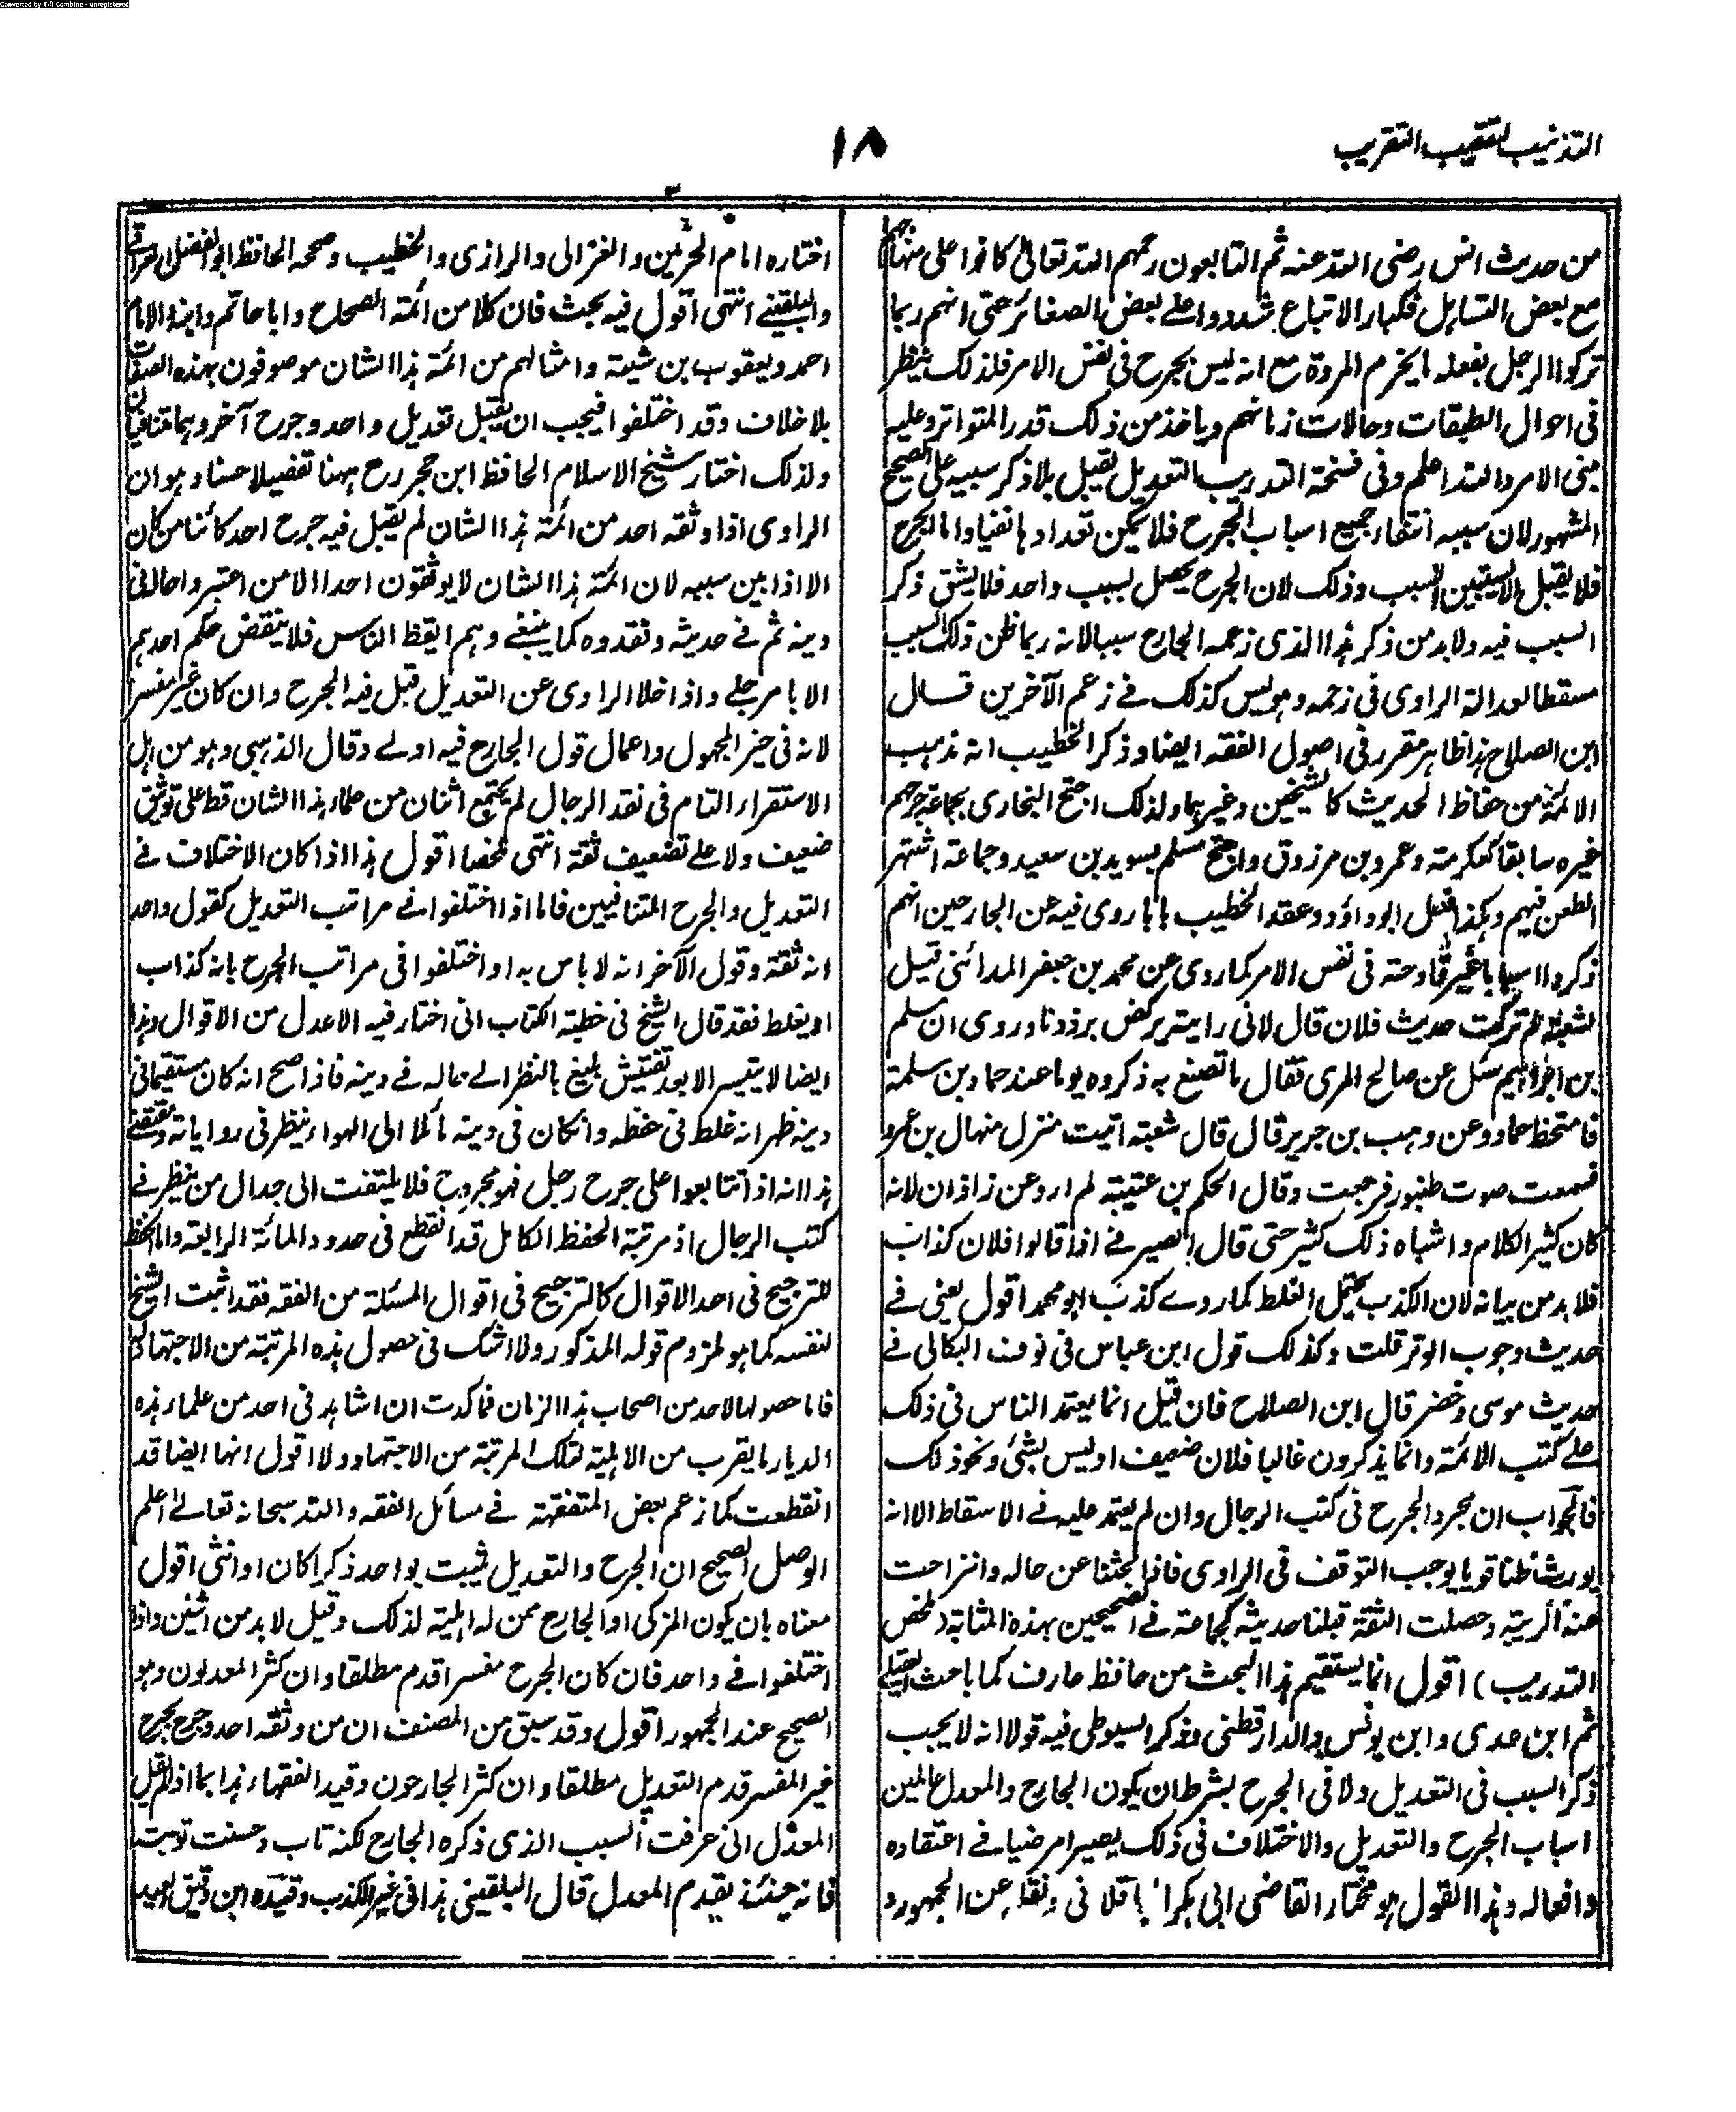 Converted by Tiff Combine - unregistered
التذنيب لتعقيب التقريب
١٨
من حديث انس رضى الله عنه ثم التابعون رحمهم الله تعالى كانوا على منهاجهم
مع بعض التساهل فكبار الاتباع شددوا على بعض الصغائر حتى انهم ربما
تركوا الرجل بفعله ما يخرم المروة مع انه ليس بجرح فى نفس الامر فلذلك ينظر
فى احوال الطبقات وحالات زمانهم وياخذ من ذلك قدر المتواتر وعليه
مبنى الامر والله اعلم وفى نسخة التدريب التعديل يقبل بلا ذكر سببه على الصحيح
المشهور لان سببه انتفاء جميع اسباب الجرح فلا يمكن تعدادها نفيا واما الجرح
فلا يقبل الا بتبيين السبب وذلك لان الجرح يحصل بسبب واحد فلا يشق ذكر
السبب فيه ولا بد من ذكر هذا الذى زعمه الجارح سببا لانه ربما ظن ذلك السبب
مسقطا لعدالة الراوى فى زعمه وهو ليس كذلك فى زعم الآخرين قال
ابن الصلاح هذا ظاهر مقرر فى اصول الفقه ايضا وذكر الخطيب انه مذهب
الائمة من حفاظ الحديث كالشيخين وغيرهما ولذلك احتج البخارى بجماعة جرحهم
غيره سابقا كعكرمة وعمرو بن مرزوق واحتج مسلم بسويد بن سعيد وجماعة اشتهر
الطعن فيهم وهكذا فعل ابو داؤد وعقد الخطيب بابا روى فيه عن الجارحين انهم
ذكروا اسبابا غير قادحة فى نفس الامر كما روى عن محمد بن جعفر المدائنى قيل
لشعبة لم تركت حديث فلان قال لانى رايته يركض برذونا وروى ان مسلم
بن ابراهيم سئل عن صالح المرى فقال ما تصنع به ذكروه يوما عند حماد بن سلمة
فامتخط حماد وعن وهب بن جرير قال قال شعبة اتيت منزل منهال بن عمرو
فسمعت صوت طنبور فرجعت وقال الحكم بن عتيبة لم ارو عن زاذان لانه
كان كثير الكلام واشباه ذلك كثير حتى قال الصيرفى اذا قالوا فلان كذاب
فلا بد من بيانه لان الكذب يحتمل الغلط كما روى كذب ابو محمد اقول يعنى فى
حديث وجوب الوتر قلت وكذلك قول ابن عباس فى نوف البكالى فى
حديث موسى وخضر قال ابن الصلاح فان قيل انما يعتمد الناس فى ذلك
على كتب الائمة وانما يذكرون غالبا فلان ضعيف او ليس بشئ ونحو ذلك
فالجواب ان مجرد الجرح فى كتب الرجال وان لم يعتمد عليه فى الاسقاط الا انه
يورث ظنا قويا يوجب التوقف فى الراوى فاذا بحثنا عن حاله وانزاحت
عنه الريبة وحصلت الثقة قبلنا حديثه كجماعة فى الصحيحين بهذه المثابة (ملخص
التدريب) اقول انما يستقيم هذا البحث من حافظ عارف كما باحث العقيلى
ثم ابن عدى وابن يونس والدارقطنى وذكر السيوطى فيه قولا انه لا يجب
ذكر السبب فى التعديل ولا فى الجرح بشرط ان يكون الجارح والمعدل عالمين
اسباب الجرح والتعديل والاختلاف فى ذلك بصيرا مرضيا فى اعتقاده
وافعاله وهذا القول هو مختار القاضى ابى بكر الباقلانى ونقله عن الجمهور و
اختاره امام الحرمين والغزالى والرازى والخطيب وصححه الحافظ ابو الفضل العراقى
والبلقينى انتهى اقول فيه بحث فان كلا من ائمة الصحاح وابا حاتم وابنه والامام
احمد ويعقوب بن شيبة وامثالهم من ائمة هذا الشان موصوفون بهذه الصفات
بلا خلاف وقد اختلفوا فيجب ان يقبل تعديل واحد وجرح آخر وهما متنافيان
ولذلك اختار شيخ الاسلام الحافظ ابن حجر رح ههنا تفصيلا حسنا وهو ان
الراوى اذا وثقه احد من ائمة هذا الشان لم يقبل فيه جرح احد كائنا من كان
الا اذا بين سببه لان ائمة هذا الشان لا يوثقون احدا الا من اعتبروا حاله فى
دينه ثم فى حديثه ونقدوه كما ينبغى وهم ايقظ الناس فلا ينقض حكم احدهم
الا بامر جلى واذا خلا الراوى عن التعديل قبل فيه الجرح وان كان غير مفسر
لانه فى حيز المجهول واعمال قول الجارح فيه اولى وقال الذهبى وهو من اهل
الاستقراء التام فى نقد الرجال لم يجتمع اثنان من علماء هذا الشان قط على توثيق
ضعيف ولا على تضعيف ثقة انتهى ملخصا اقول هذا اذا كان الاختلاف فى
التعديل والجرح المتنافيين فاما اذا اختلفوا فى مراتب التعديل كقول واحد
انه ثقة وقول الآخر انه لا باس به او اختلفوا فى مراتب الجرح بانه كذاب
او يغلط فقد قال الشيخ فى خطبة الكتاب انى اختار فيه الاعدل من الاقوال وهذا
ايضا لا يتيسر الا بعد تفتيش بليغ بالنظر الى حاله فى دينه فاذا صح انه كان مستقيما فى
دينه ظهر انه غلط فى حفظه وان كان فى دينه مائلا الى الهواء ينظر فى رواياته ومقتضى
هذا انه اذا تتابعوا على جرح رجل فهو مجروح فلا يلتفت الى جدال من ينظر فى
كتب الرجال اذ مرتبة الحفظ الكامل قد انقطع فى حدود المائة الرابعة واما الحفظ
للترجيح فى احد الاقوال كالترجيح فى اقوال المسئلة من الفقه فقد اثبت الشيخ
لنفسه كما هو ملزوم قوله المذكور ولا اشك فى حصول هذه المرتبة من الاجتهاد له
فاما حصولها لاحد من اصحاب هذا الزمان فما كدت ان اشاهد فى احد من علماء هذه
الديار ما يقرب من الاهلية لتلك المرتبة من الاجتهاد ولا اقول انها ايضا قد
انقطعت كما زعم بعض المتفقهة فى مسائل الفقه والله سبحانه تعالى اعلم
الوصل الصحيح ان الجرح والتعديل يثبت بواحد ذكرا كان او انثى اقول
معناه بان يكون المزكى او الجارح ممن له اهلية لذلك وقيل لا بد من اثنين واذا
اختلفوا فى واحد فان كان الجرح مفسرا قدم مطلقا وان كثر المعدلون وهو
الصحيح عند الجمهور اقول وقد سبق من المصنف ان من وثقه احد وجرح بجرح
غير المفسر قدم التعديل مطلقا وان كثر الجارحون وقيد الفقهاء هذا بما اذا لم يقل
المعدل انى عرفت السبب الذى ذكره الجارح لكنه تاب وحسنت توبته
فانه حينئذ يقدم المعدل قال البلقينى هذا فى غير الكذب وقيده ابن دقيق العيد